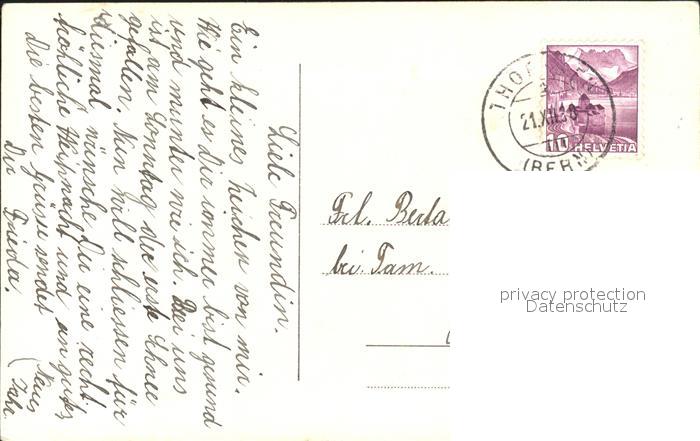 Liebe Freundin.
Ein kleines Zeichen von mir.
Wie geht es dir immer bist gesund
und munter wie ich. Bei uns
ist am Sonntag der erste Schnee
gefallen. Nun will schliessen für
diesmal wünsche Du eine recht
fröhliche Weihnacht und an gutes
die besten Grüsse sendet (Neues
Dir Frieda. Jahr.
Frl. Berta
bei Fam.
21.XII.3
(BERN)
10 HELVETIA
privacy protection
Datenschutz